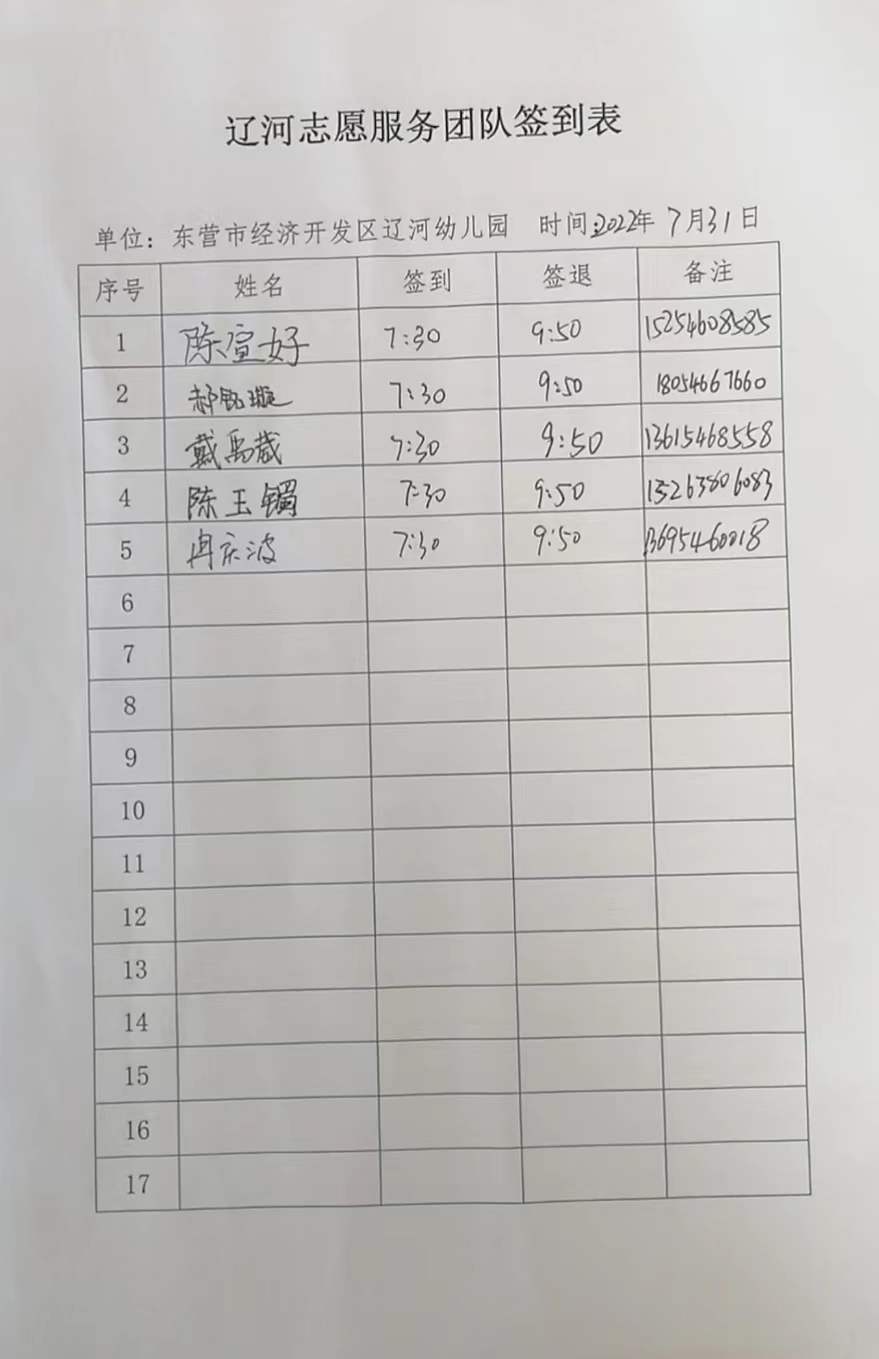 辽河志愿服务团队签到表
单位：东营市经济开发区辽河幼儿园 时间:2022年 7月31日
序号 姓名 签到 签退 备注
1 陈萱好 7:30 9:50 15254608585
2 郝铭璇 7:30 9:50 18054667660
3 戴禹葳 7:30 9:50 13615468558
4 陈玉镯 7:30 9:50 15263806083
5 冉庆波 7:30 9:50 13695460018
6
7
8
9
10
11
12
13
14
15
16
17